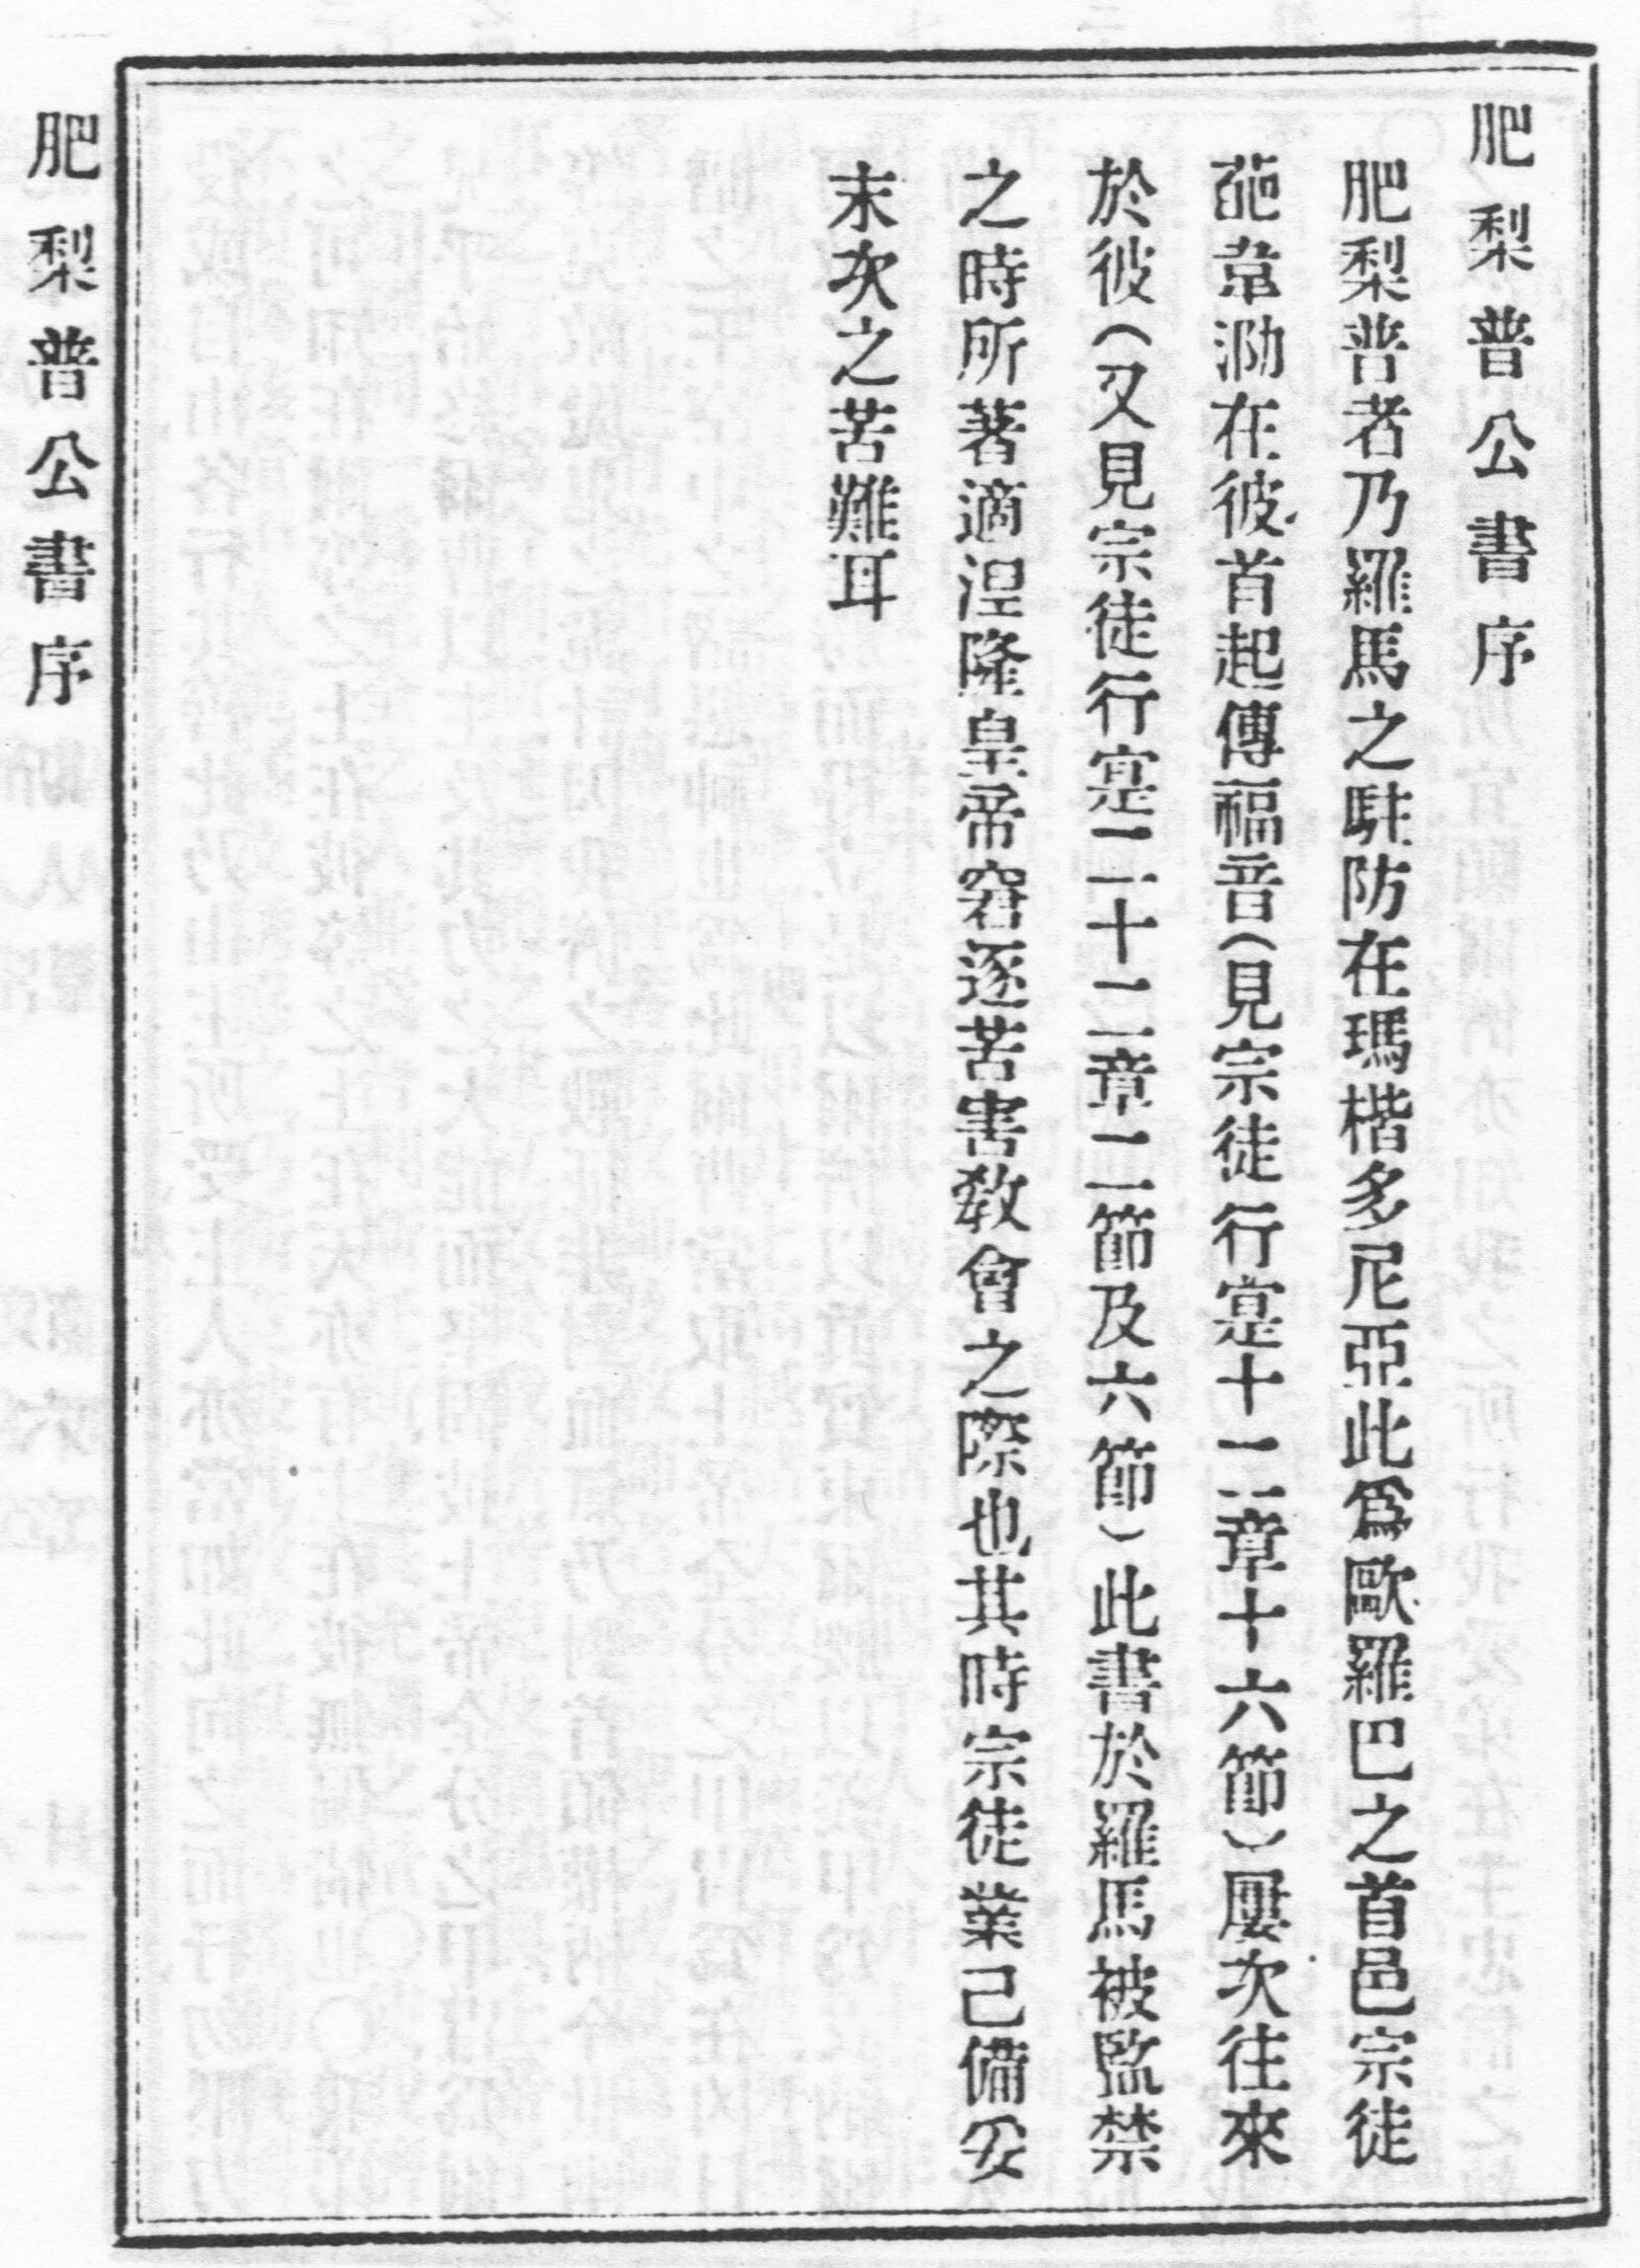 肥梨普公書序
肥梨普者乃羅馬之駐防在瑪楷多尼亞此爲歐羅巴之首邑宗徒
葩韋泐在彼首起傳福音(見宗徒行寔十二章十六節)屢次往來
於彼(又見宗徒行寔二十二章二節及六節)此書於羅馬被監禁
之時所著適湼隆皇帝窘逐苦害教會之際也其時宗徒業己備妥
末次之苦難耳
肥梨普公書序